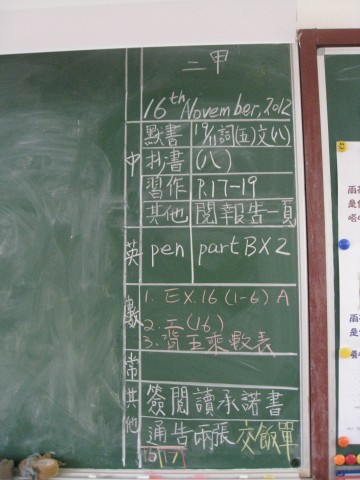 二甲
16th November, 2012
中
默書 19/11詞(五)文(八)
抄書 (八)
習作 P.17-19
其他 閱報告一頁
英 pen part B X 2
數 1. EX.16 (1-6) A
2. 工(16)
3. 背五乘數表
常
其他 簽閱讀承諾書
通告兩張 交飯單